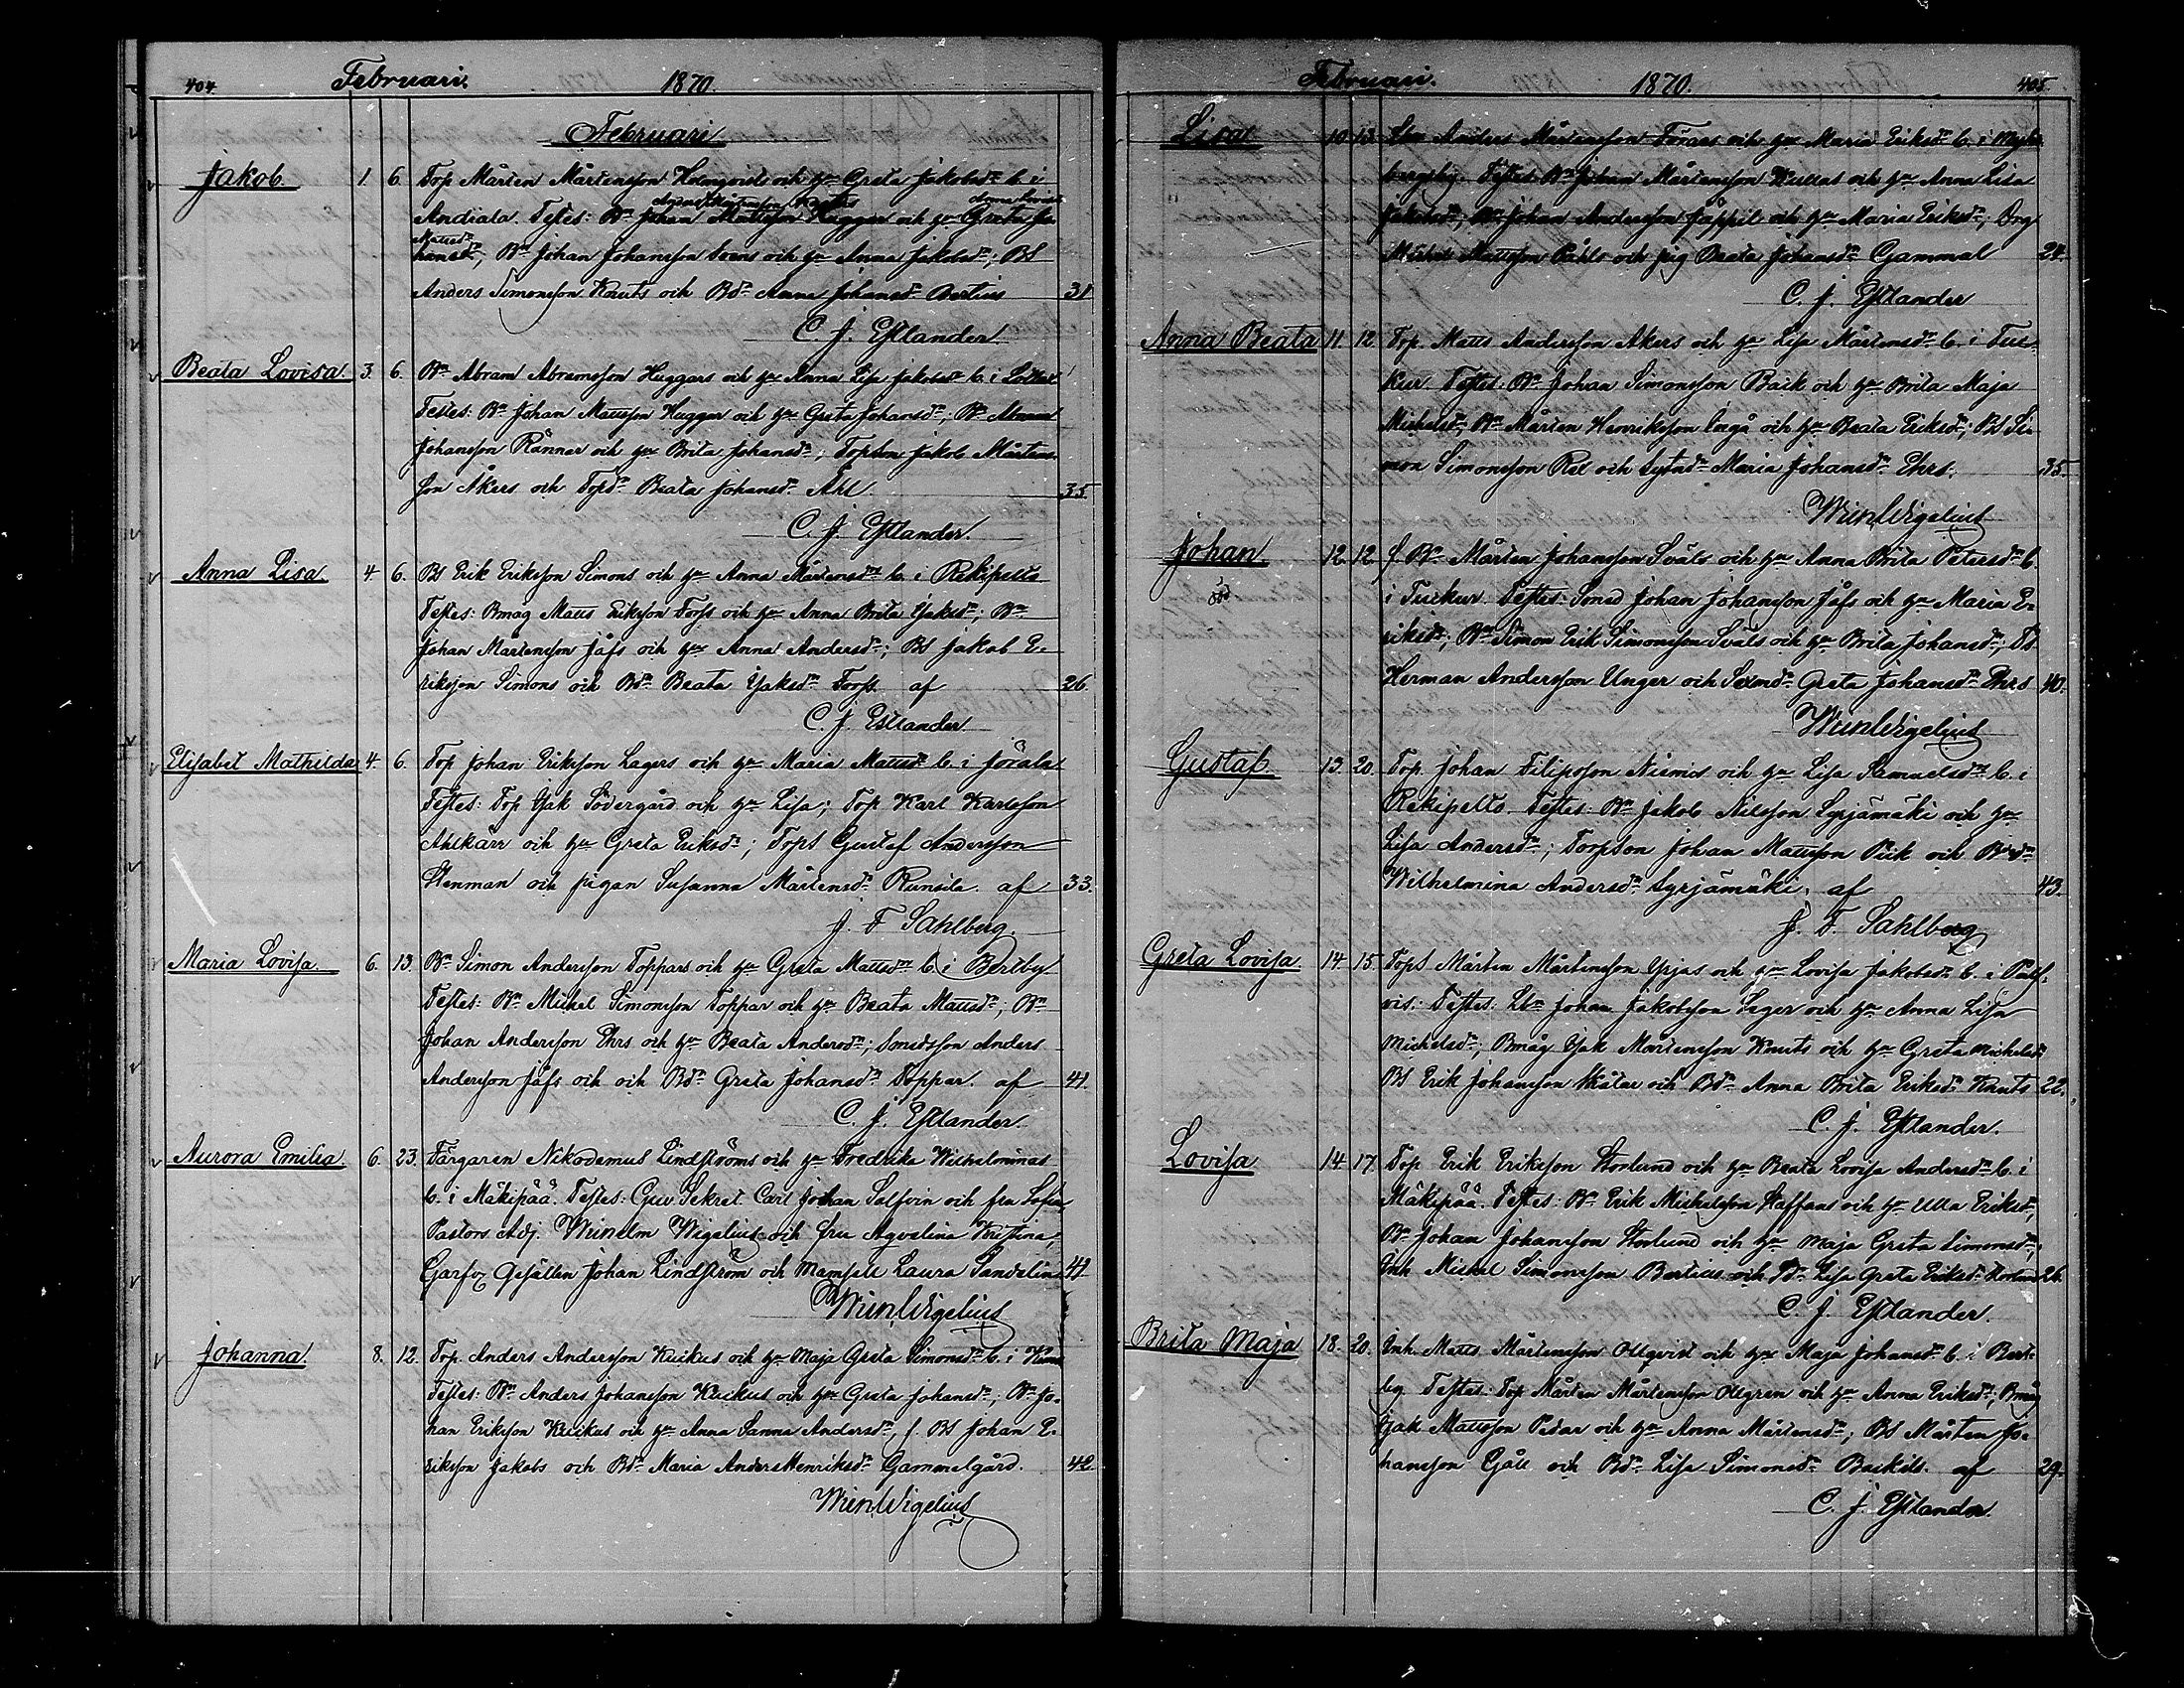 404 Februari. 1870.
Februari
Jakob. 1. 6. Top Mårten Mårtensson Holmqvist och hu Greta Jakobsdr b. i
Anders Mårtensson Anna Lovisa
Andiala. Testes: Bn Johan Mattsson Huggar och hu Greta Jo
Mattsdr
hansdr; Bn Johan Johansson Svens och hu Anna Jakobsdr; BS
Anders Simonsson Knuts och Bdr Anna Johansdr Bertius 31
C. J. Estlander
Beata Lovisa 3. 6. Bn Abram Abramsson Huggars och hu Anna Lisa Jakobsdr b. i
Testes: Bn Johan Mattsson Huggar och hu Greta Johansdr; Bn Abram
Johansson Rännar och hu Brita Johansdr; Topson Jakob Mårtens
son Åkers och Topdr Beata Johansdr Åhl. 35.
C. J. Estlander.
Anna Lisa 4 6. BS Erik Eriksson Simons och hu Anna Mårtensdr b. i Rekipelto
Testes: Bmåg Matts Eriksson Forss och hu Anna Brita Isaksdr; Bn
Johan Mårtensson Jåfs och hu Anna Andersdr; BS Jakob E-
riksson Simons och Bdr Beata Isaksdr Forss. af 26
C. J. Estlander
Elisabet Mathilda 4. 6. Top Johan Eriksson Lagers och hu Maria Mattsdr b. i Jörala
Testes: Top Isak Södergård och hu Lisa; Top Karl Karlsson
Ahlkärr och hu Greta Eriksdr; TopS Gustaf Andersson
Stenman och pigan Susanna Mårtensdr Runsila. af 33.
J. F. Sahlberg.
Maria Lovisa. 6. 13. Bn Simon Andersson Toppars och hu Greta Mattsdr b. i Bertby
Testes: Bn Mickel Simonsson Toppar och hu Beata Mattsdr; Bn
Johan Andersson Ehrs och hu Beata Andersdr; Smedsson Anders
Andersson Jåfs och och Bdr Greta Johansdr Toppar. af 41.
C. J. Estlander.
Aurora Emilia 6. 23. Färgaren Nikodemus Lindströms och hu Fredrika Wilhelminas
b. i Mäkipää. Testes: Guv Sekret. Carl Johan Salfvin och fru Sofia
Pastors Adj. Wilhelm Wigelius och fru Aqvelina Kristina;
Garfv Gesällen Johan Lindström och Mamsell Laura Sandelin 41
Wilh Wigelius
Johanna. 8. 12. Top. Anders Andersson Kuckus och hu Maja Greta Simonsdr b. i
Testes: Bn Anders Johansson Kuckus och hu Greta Johansdr; Bn Jo-
han Eriksson Kuckus och hu Anna Sanna Andersdr, f. BS Johan E-
riksson Jakobs och Bdr Maria Anders Henriksdr Gammelgård. 42
Wilh Wigelius
Februari. 1870. 405
Lisa 10. 13. Anders Mårtensson Förars och hu Maria Eriksdr b. i
bergsby. Testes Bn Johan Mårtensson Kullas och hu Anna Lisa
Jakobsdr; Bn Johan Andersson Jåppil och hu Maria Eriksdr; Drg
Mickel Mattsson Påhls och pig Beata Johansdr Gammal 24.
C. J. Estlander
Anna Beata 11. 12 Top. Matts Andersson Akers och hu Lisa Mårtensdr b. i Tuc-
kur. Testes: Bn Johan Simonsson Back och hu Brita Maja
Michelsdr; Bn Mårten Henriksson Ingå och hu Beata Eriksdr; BS Si-
mon Simonsson Rex och Sytndr Maria Johansdr Ehrs. 35.
Wilh Wigelius
Johan. 12. 12 f. Bn Mårten Johansson Svåls och hu Anna Brita Petersdr b.
död i Tuckur. Testes: Smed Johan Johansson Jåfs och hu Maria E-
riksdr; Bn Simon Erik Simonsson Svåls och hu Brita Johansdr;
Herman Andersson Unger och Sexmdr Greta Johansdr Ehrs 40.
Wilh Wigelius
Gustaf. 13. 20. Top. Johan Filipsson Niemis och hu Lisa Samuelsdr b. i
Rekipelto. Testes: Bn Jakob Nilsson Syrjämäki och hu
Lisa Andersdr; Torpson Johan Mattsson Piik och Bdr
Wilhelmina Andersdr Syrjämäki. af 43.
J. F. Sahlberg
Greta Lovisa 14. 15. TopS Mårten Mårtensson Yrjas och hu Lovisa Jakobsdr b. i Palf-
vis. Testes. Johan Jakobsson Seger och hu Anna Lisa
Michelsdr; Bmåg Isak Mårtensson Knuts och hu Greta Michelsdr
BS Erik Johansson Skåtar och Bdr Anna Brita Eriksdr Knuts 22.
C. J. Estlander.
Lovisa 14. 17. Top Erik Eriksson Storlund och hu Beata Lovisa Andersdr b. i
Mäkipää. Testes: Bn Erik Michelsson Staffans och hu Ulla Eriksdr,
Bn Johan Johansson Storlund och hu Maja Greta Simonsdr;
Inh. Mickel Simonsson Bertils och Lisa Greta Eriksdr Storlund 26.
C. J. Estlander.
Brita Maja 18. 20. Inh. Matts Mårtensson Ollqvist och hu Maja Johansdr b. i Bert-
by. Testes: Top Mårten Mårtensson Ollgren och hu Anna Eriksdr; Bmåg
Isak Mattsson Pedar och hu Anna Mårtensdr; BS Mårten Jo-
hansson Gjäll och Bdr Lisa Simonsdr Backils. af 29.
C. J. Estlander.